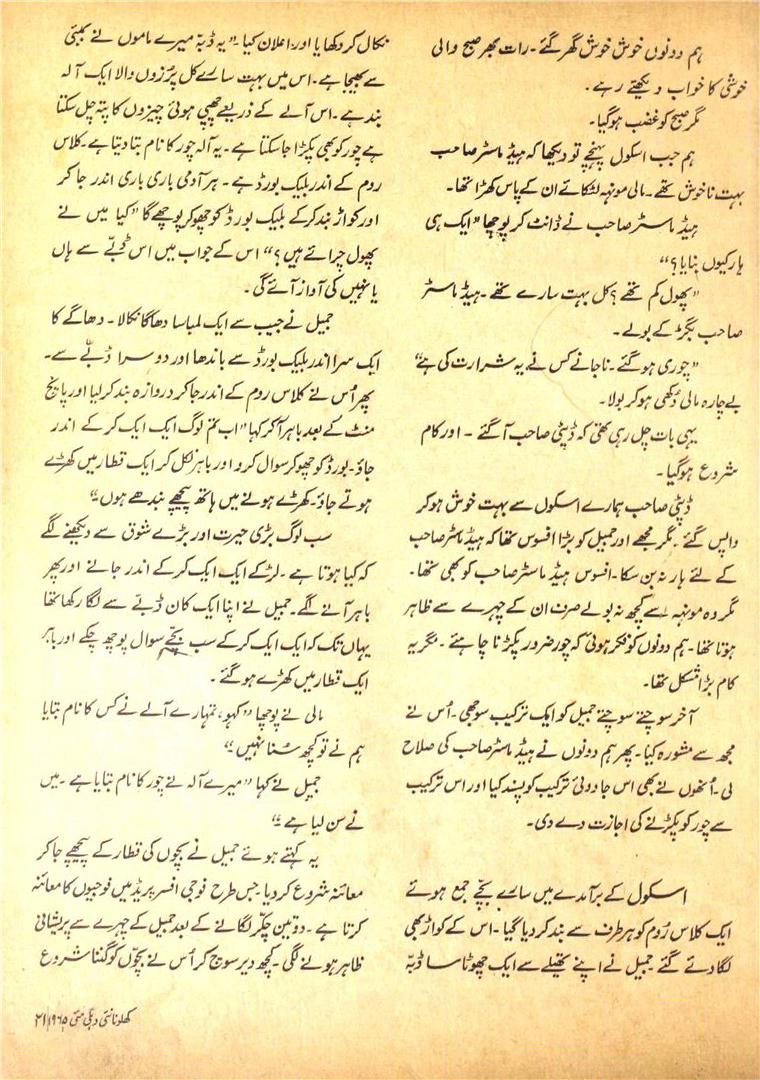 ہم دونوں خوش خوش گھر گئے۔ رات بھر صبح والی
خوشی کا خواب دیکھتے رہے۔
مگر صبح کو غضب ہوگیا۔
ہم جب اسکول پہنچے تو دیکھا کہ ہیڈ ماسٹر صاحب
بہت ناخوش تھے۔ مالی مونہہ لٹکائے ان کے پاس کھڑا تھا۔
ہیڈ ماسٹر صاحب نے ڈانٹ کر پوچھا "ایک ہی
ہار کیوں بنایا؟"
"پھول کم تھے؟ کل بہت سارے تھے۔ ہیڈ ماسٹر
صاحب بگڑ کے بولے۔
"چوری ہوگئے۔ نا جانے کس نے یہ شرارت کی ہے"
بے چارہ مالی دُکھی ہو کر بولا۔
یہی بات چل رہی تھی کہ ڈپٹی صاحب آگئے ۔ اور کام
شروع ہوگیا۔
ڈپٹی صاحب ہمارے اسکول سے بہت خوش ہو کر
واپس گئے ۔ مگر مجھے اور جمیل کو بڑا افسوس تھا کہ ہیڈ ماسٹر صاحب
کے لئے ہار نہ بن سکا۔ افسوس ہیڈ ماسٹر صاحب کو بھی تھا۔
مگر وہ مونہہ سے کچھ نہ بولے صرف ان کے چہرے سے ظاہر
ہوتا تھا۔ ہم دونوں کو فکر ہوئی کہ چور ضرور پکڑنا چاہئے ۔ مگر یہ
کام بڑا مشکل تھا۔
آخر سوچتے سوچتے جمیل کو ایک ترکیب سوجھی۔ اُس نے
مجھ سے مشورہ کیا۔ پھر ہم دونوں نے ہیڈ ماسٹر صاحب کی صلاح
لی۔ اُنھوں نے بھی اس جادوئی ترکیب کو پسند کیا اور اس ترکیب
سے چور کو پکڑنے کی اجازت دے دی۔
اسکول کے برآمدے میں سارے بچّے جمع ہوئے
ایک کلاس رُوم کو ہر طرف سے بند کر دیا گیا۔ اس کے کواڑ بھی
لگا دئے گئے ۔ جمیل نے اپنے تھیلے سے ایک چھوٹا سا ڈبّہ
نکال کر دکھایا اور اعلان کیا۔ "یہ ڈبّہ میرے ماموں نے بمبئی
سے بھیجا ہے۔ اس میں بہت سارے کل پُرزوں والا ایک آلہ
بند ہے۔ اس آلے کے ذریعے چھپی ہوئی چیزوں کا پتہ چل سکتا
ہے چور کو بھی پکڑا جا سکتا ہے۔ یہ آلہ چور کا نام بتا دیتا ہے۔ کلاس
روم کے اندر بلیک بورڈ ہے ۔ ہر آدمی باری باری اندر جا کر
اور کواڑ بند کر کے بلیک بورڈ کو چھو کر پوچھے گا "کیا میں نے
پھول چرائے ہیں؟" اس کے جواب میں اس ڈبّے سے ہاں
یا نہیں کی آواز آئے گی ۔
جمیل نے جیب سے ایک لمبا سا دھاگا نکالا ۔ دھاگے کا
ایک سرا اندر بلیک بورڈ سے باندھا اور دوسرا ڈبّے سے۔
پھر اُس نے کلاس روم کے اندر جا کر دروازہ بند کر لیا اور پانچ
منٹ کے بعد باہر آ کر کہا "اب تم لوگ ایک ایک کر کے اندر
جاؤ۔ بورڈ کو چھو کر سوال کرو اور باہر نکل کر ایک قطار میں کھڑے
ہوتے جاؤ۔ کھڑے ہونے میں ہاتھ پیچھے بندھے ہوں۔"
سب لوگ بڑی حیرت اور بڑے شوق سے دیکھنے لگے
کہ کیا ہوتا ہے ۔ لڑکے ایک ایک کر کے اندر جانے اور پھر
باہر آنے لگے۔ جمیل نے اپنا ایک کان ڈبّے سے لگا رکھا تھا
یہاں تک کہ ایک ایک کر کے سب بچّے سوال پوچھ چکے اور باہر
ایک قطار میں کھڑے ہوگئے ۔
مالی نے پوچھا "کہو، تمہارے آلے نے کس کا نام بتایا
ہم نے تو کچھ سُنا نہیں۔"
جمیل نے کہا "میرے آلہ نے چور کا نام بتایا ہے ۔ میں
نے سن لیا ہے۔"
یہ کہتے ہوئے جمیل نے بچّوں کی قطار کے پیچھے جا کر
معائنہ شروع کر دیا۔ جس طرح فوجی افسر پریڈ میں فوجیوں کا معائنہ
کرتا ہے ۔ دو تین چکّر لگانے کے بعد جمیل کے چہرے سے پریشانی
ظاہر ہونے لگی ۔ کچھ دیر سوچ کر اُس نے بچّوں کو گننا شروع
کھلونا نئی دہلی مئی ۱۹۶۵ء / ۲۱